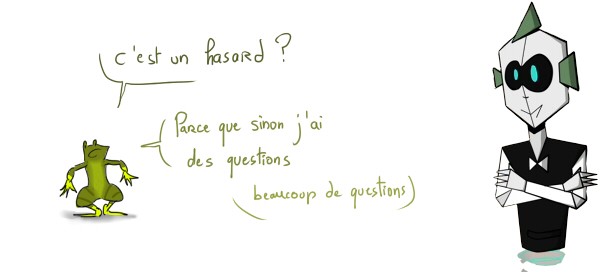 c'est un hasard ?
Parce que sinon j'ai
des questions
beaucoup de questions